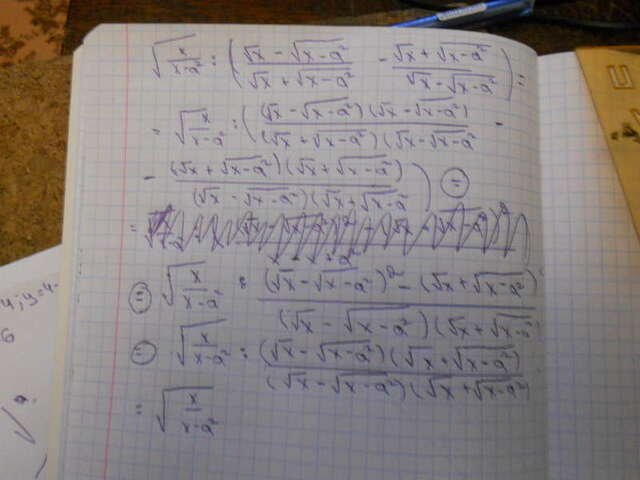 √(x/(x-a²)) : ((√x - √(x-a²))/(√x + √(x-a²)) - (√x + √(x-a²))/(√x - √(x-a²))) =
= √(x/(x-a²)) : ((√x - √(x-a²))(√x - √(x-a²))/(√x + √(x-a²))(√x - √(x-a²) -
- (√x + √(x-a²))(√x + √(x-a²))/(√x - √(x-a²))(√x + √(x-a²)) =
= √(x/(x-a²)) : (√x - √(x-a²))² - (√x + √(x-a²))/(√x - √(x-a²))(√x + √(x-a²))
= √(x/(x-a²)) : (√x - √(x-a²))(√x + √(x-a²))/(√x - √(x-a²))(√x + √(x-a²))
= √(x/(x-a²))
4; y=4-
6